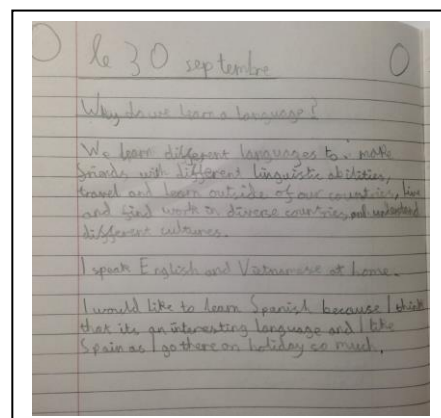 le 30 septembre
Why do we learn a language?
We learn different languages to make
friends with different linguistic abilities,
travel and learn outside of our countries, live
and find work in diverse countries and understand
different cultures.
I speak English and Vietnamese at home.
I would like to learn Spanish because I think
that its an interesting language and I like
Spain as I go there on holiday so much.